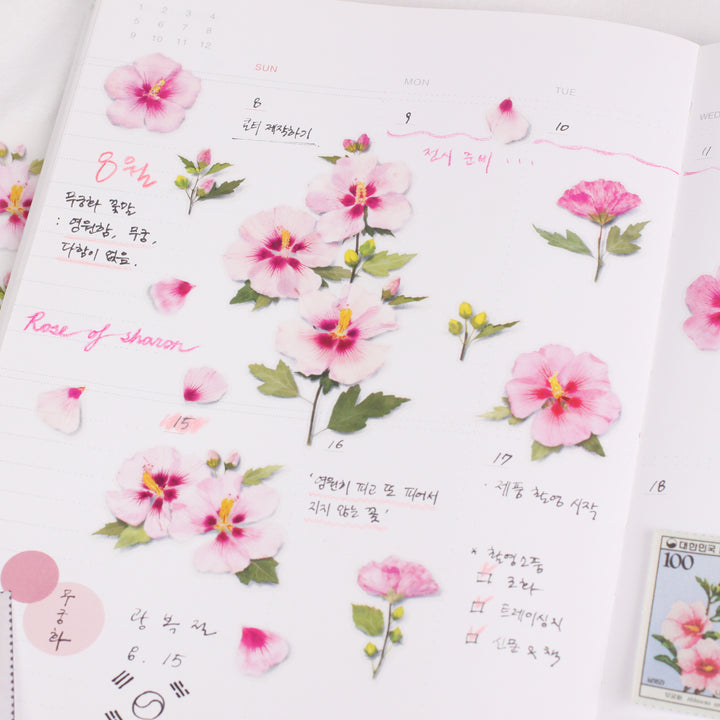 1 2 3 4
5 6 7 8
9 10 11 12
SUN
MON
TUE
WED
8
9
10
11
제작하기
전시 준비 ...
8월
무궁화 꽃말
: 영원함, 무궁,
다함이 없음.
Rose of sharon
15
16
17
18
'영원히 피고 또 피어서
지지 않는 꽃'
· 제품 촬영 시작
* 촬영소품
조화
트레이싱지
신문 & 책
무궁화
광복절
8. 15
대한민국
100